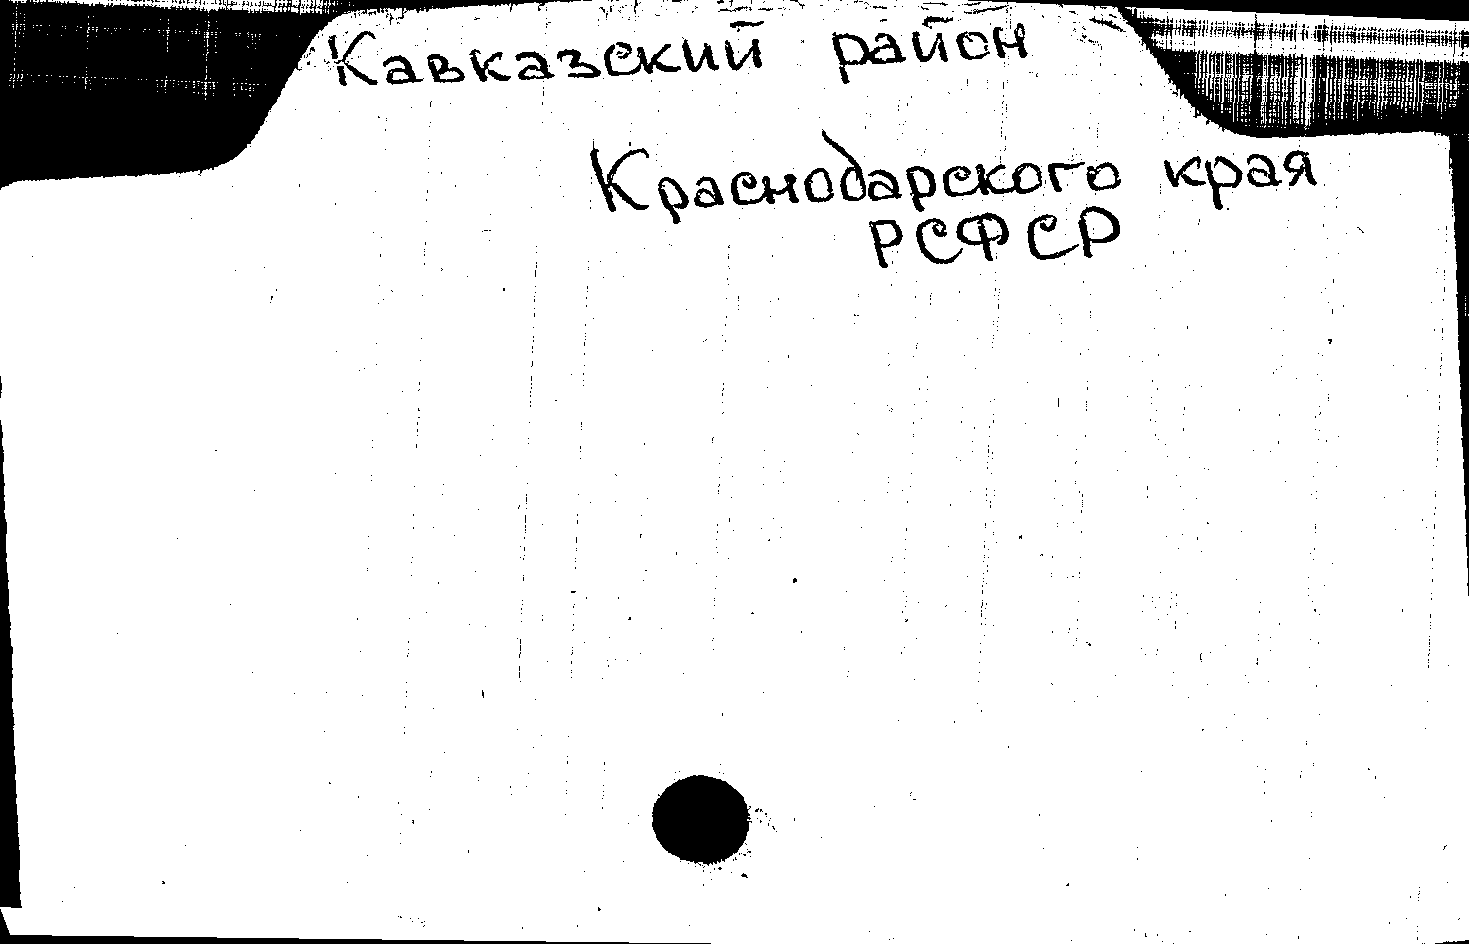 Кавказский район
Краснодарского края
РСФСР